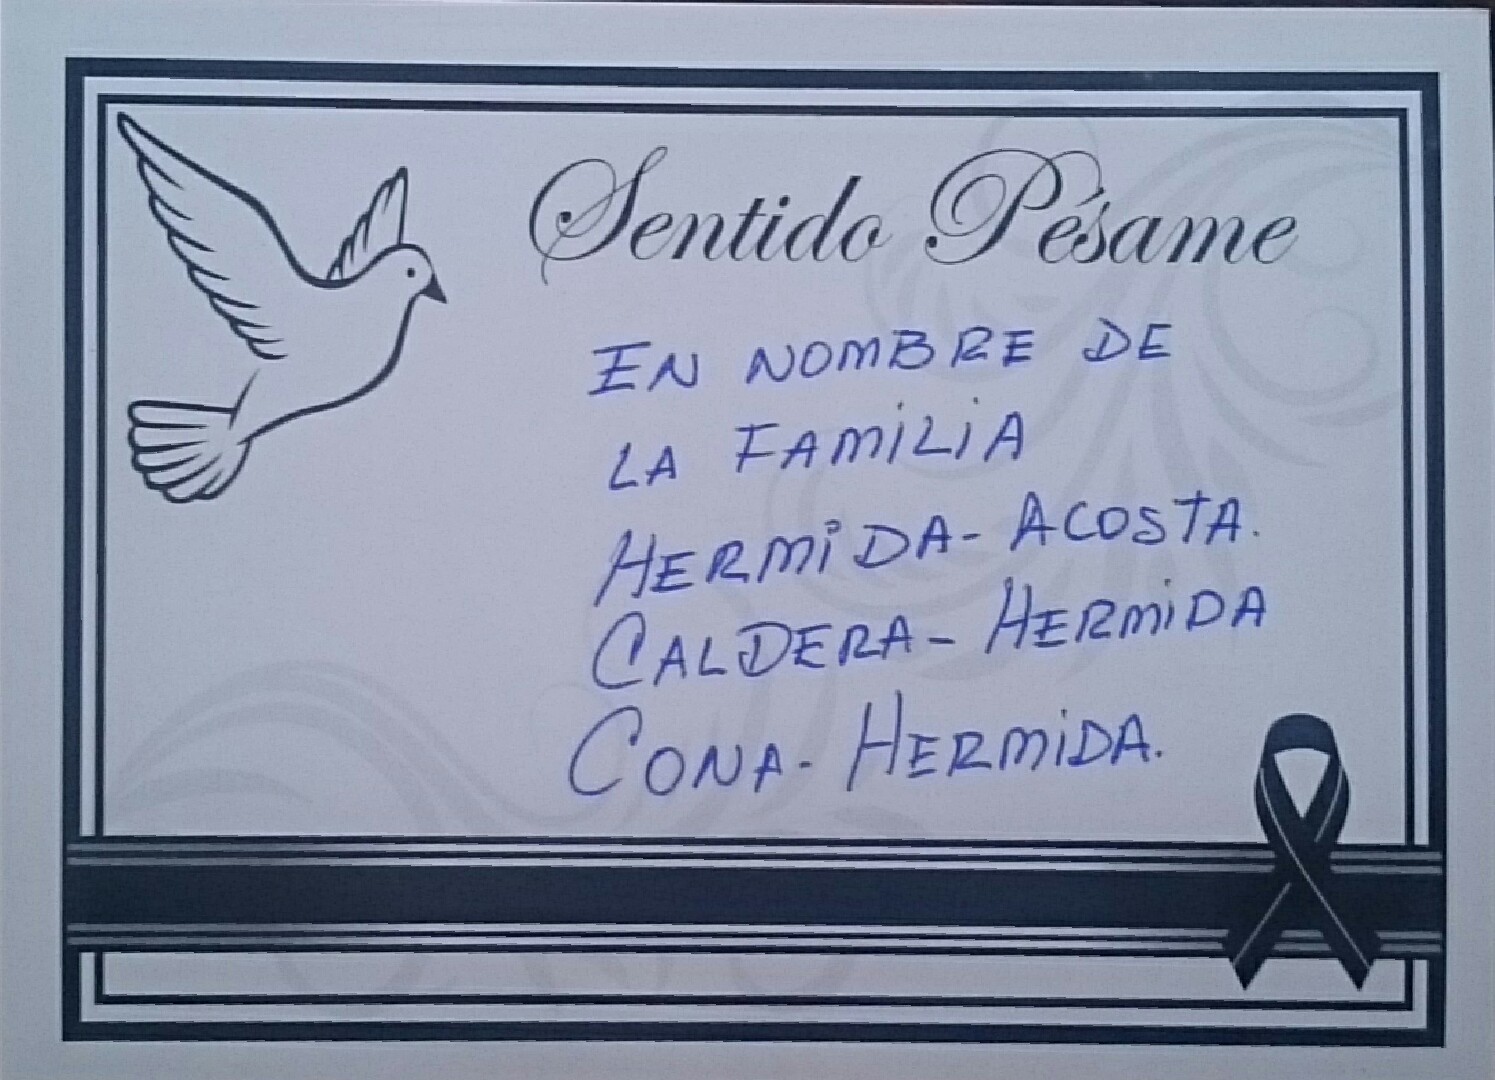 Sentido Pésame
EN NOMBRE DE
LA FAMILIA
HERMIDA - ACOSTA.
CALDERA - HERMIDA
CONA - HERMIDA.